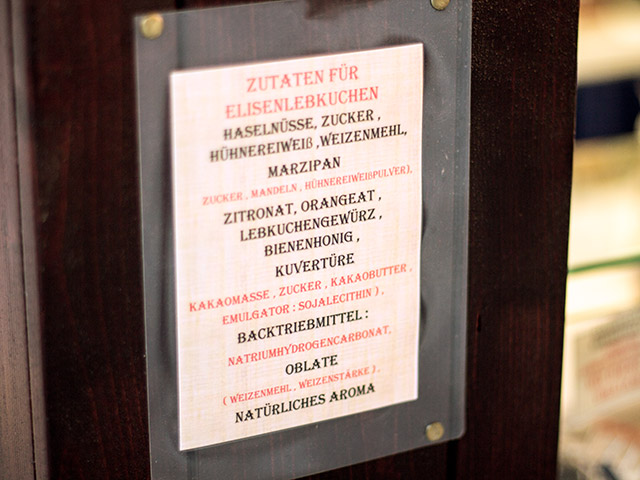 ZUTATEN FÜR
ELISENLEBKUCHEN
HASELNÜSSE, ZUCKER ,
HÜHNEREIWEIß ,WEIZENMEHL,
MARZIPAN
ZUCKER , MANDELN , HÜHNEREIWEIßPULVER),
ZITRONAT, ORANGEAT ,
LEBKUCHENGEWÜRZ ,
BIENENHONIG ,
KUVERTÜRE
KAKAOMASSE , ZUCKER , KAKAOBUTTER ,
EMULGATOR : SOJALECITHIN ) ,
BACKTRIEBMITTEL :
NATRIUMHYDROGENCARBONAT,
OBLATE
( WEIZENMEHL , WEIZENSTÄRKE ) ,
NATÜRLICHES AROMA